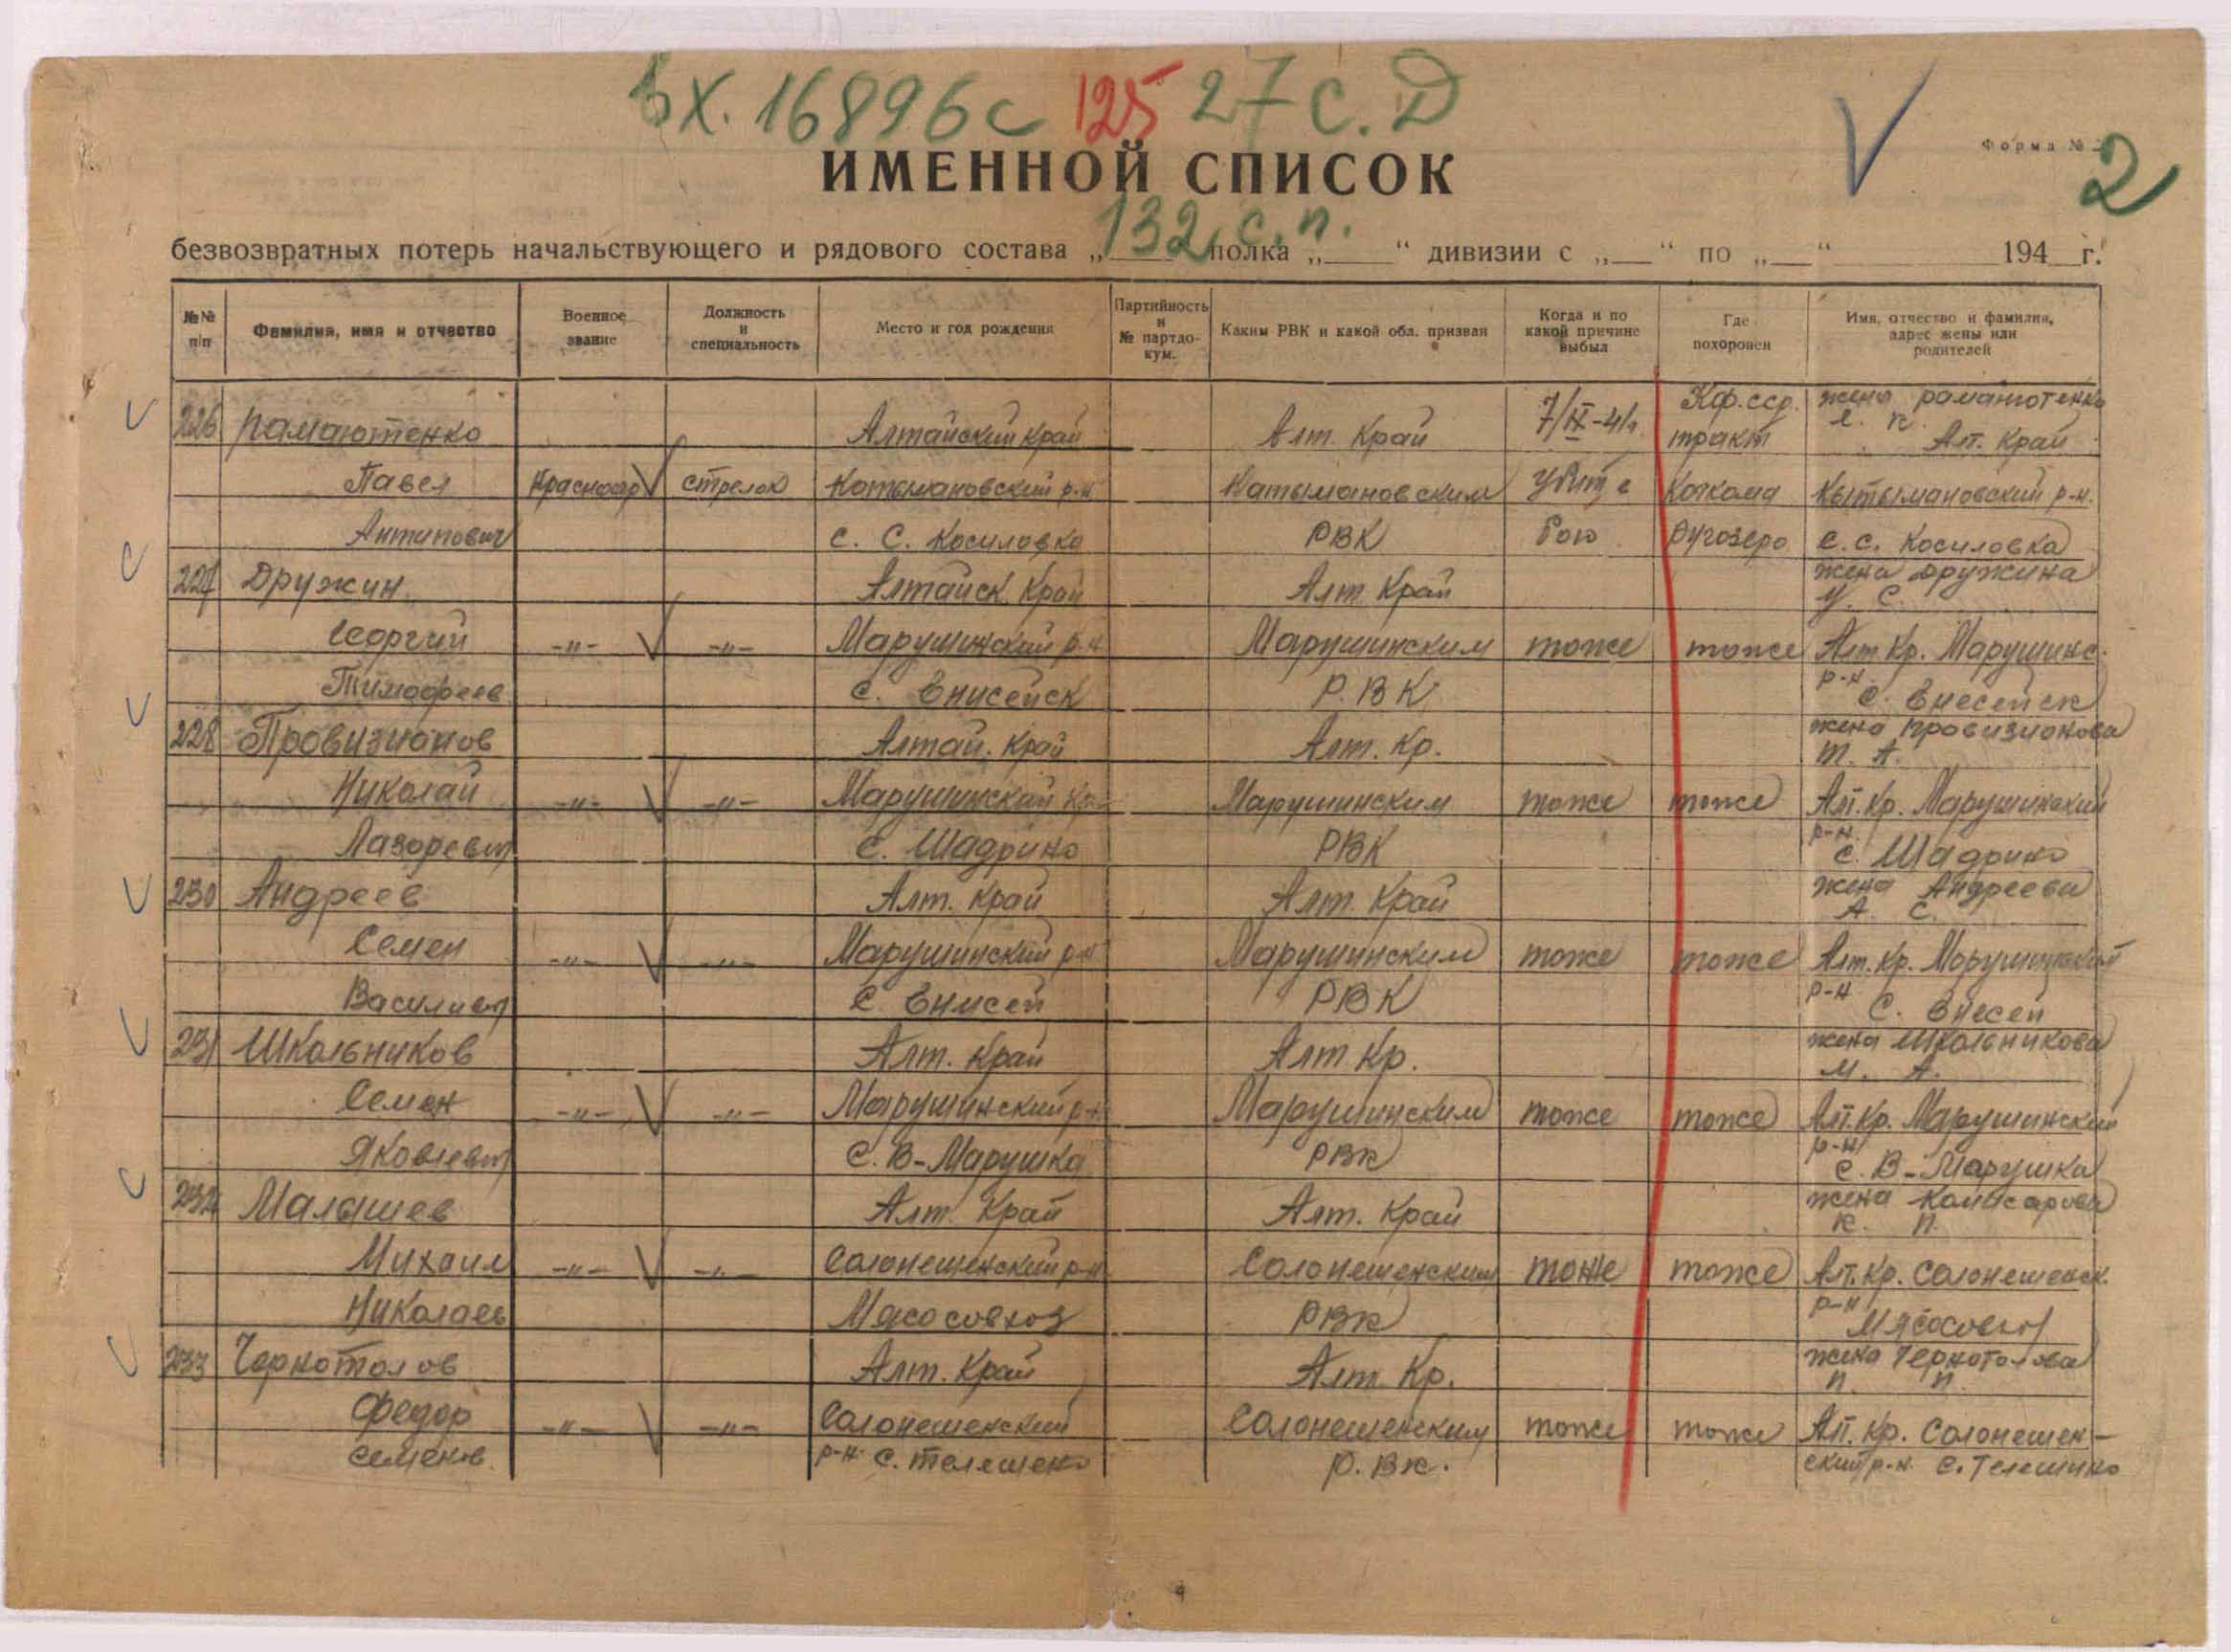 Вх. 16896с 125 27 с. Д
Форма № 2
ИМЕННОЙ СПИСОК
безвозвратных потерь начальствующего и рядового состава „132 с. п. полка „ “ дивизии с „ “ по „ “ 194 г.
№№ п/п Фамилия, имя и отчество Военное звание Должность и специальность Место и год рождения Партийность и № партдокум. Каким РВК и какой обл. призван Когда и по какой причине выбыл Где похоронен Имя, отчество и фамилия, адрес жены или родителей
226 Рамаютенко Алтайский край Алт. Край 7/IX-41г. Кф.сср. тракт жена Раманютенко Е. К. Алт. край
Павел Красноар стрелок Котымановский р-н Катымановским убит в Кочкома Кытымановский р-н.
Антипович с. С. Косиловка РВК бою Ругозеро с. с. Косиловка
227 Дружин Алтайск. Край Алт. Край жена Дружина У. С.
Георгий -"- -"- Марушинский р-н Марушинским тоже тоже Алт. Кр. Марушинс. р-н.
Тимофеев с. Енисейск Р. В К с. Енесейск
228 Провизионов Алтай. Край Алт. Кр. жена Провизионова Т. А.
Николай -"- -"- Марушинский Марушинским тоже тоже Алт. Кр. Марушинский р-н.
Лазоревич с. Шадрино РВК с. Шадрино
230 Андреев Алт. край Алт. Край жена Андреева А. С.
Семен -"- -"- Марушинский р-н Марушинским тоже тоже Алт. Кр. Морушинский р-н
Василиевич с Енисей РВК С. Енесей
231 Школьников Алт. край Алт Кр. жена Школьникова М. А.
Семен -"- -"- Марушинский р-н Марушинским тоже тоже Алт. Кр. Марушинский р-н
Яковлевич с. В-Марушка РВК с. В-Марушка
232 Малышев Алт. Край Алт. Край жена Комисарова К. П.
Михаил -"- -"- Солонешенский р-н Солонешенским тоже тоже Алт. Кр. Солонешенск. р-н
Николаев Мясосовхоз РВК Мясосовхоз
233 Чернотолов Алт. Край Алт. Кр. жена Чернотолова П. П.
Федор -"- -"- Солонешенский Солонешенским тоже тоже Алт. Кр. Солонешен-
Семенов. р-н с. Телешено Р. ВК. ский р-н. с. Телешино